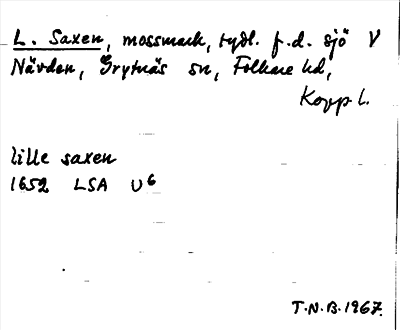 L. Saxen, mossmark, tydl. f.d. sjö V
Nävden, Grytnäs sn, Folkare hd,
Kopp l.
lille saxen
1652 LSA U6
T.N.B. 1967.